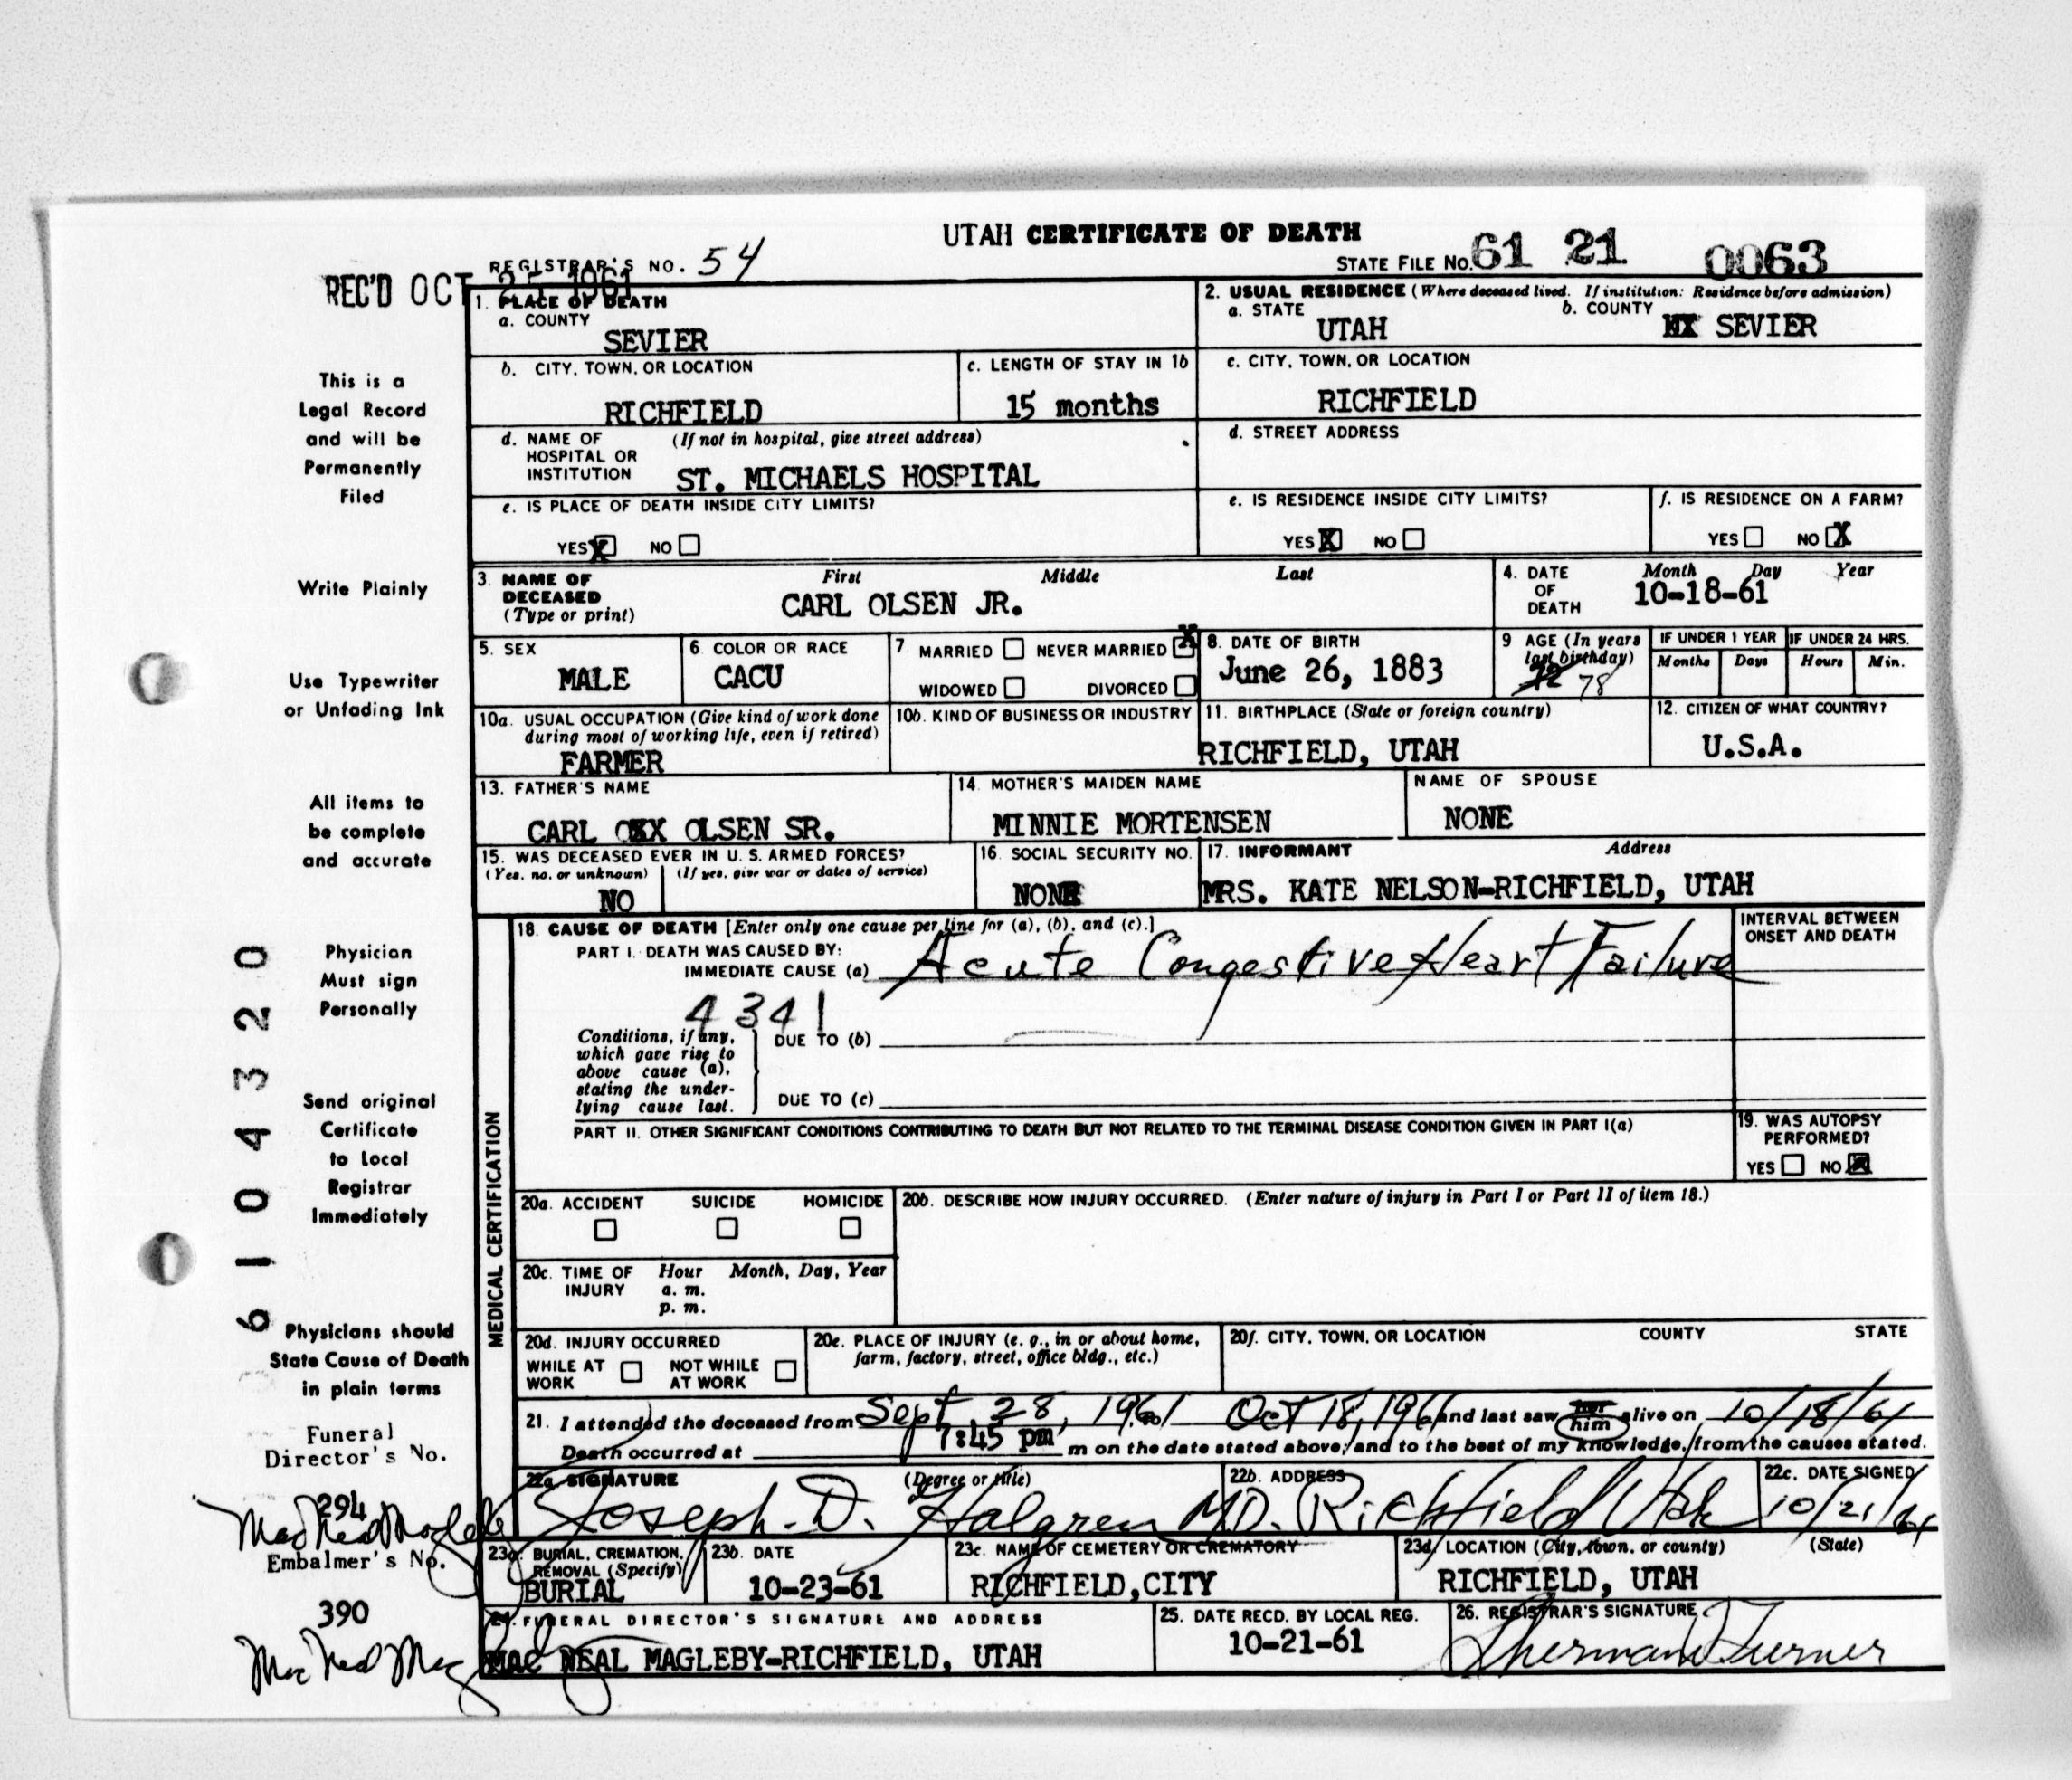 UTAH CERTIFICATE OF DEATH
REC'D OCT 25 1961
REGISTRAR'S NO. 54
STATE FILE NO. 61 21 0063
1. PLACE OF DEATH
a. COUNTY
SEVIER
2. USUAL RESIDENCE (Where deceased lived. If institution: Residence before admission)
a. STATE UTAH
b. COUNTY SEVIER
b. CITY, TOWN, OR LOCATION
RICHFIELD
c. LENGTH OF STAY IN 1b
15 months
c. CITY, TOWN, OR LOCATION
RICHFIELD
d. NAME OF HOSPITAL OR INSTITUTION (If not in hospital, give street address)
ST. MICHAELS HOSPITAL
d. STREET ADDRESS
e. IS PLACE OF DEATH INSIDE CITY LIMITS?
YES X NO
e. IS RESIDENCE INSIDE CITY LIMITS?
YES X NO
f. IS RESIDENCE ON A FARM?
YES NO X
3. NAME OF DECEASED (Type or print)
First Middle Last
CARL OLSEN JR.
4. DATE OF DEATH
Month Day Year
10-18-61
5. SEX
MALE
6. COLOR OR RACE
CACU
7 MARRIED NEVER MARRIED X
WIDOWED DIVORCED
8. DATE OF BIRTH
June 26, 1883
9 AGE (In years last birthday)
78
IF UNDER 1 YEAR
Months Days
IF UNDER 24 HRS.
Hours Min.
10a. USUAL OCCUPATION (Give kind of work done during most of working life, even if retired)
FARMER
10b. KIND OF BUSINESS OR INDUSTRY
11. BIRTHPLACE (State or foreign country)
RICHFIELD, UTAH
12. CITIZEN OF WHAT COUNTRY?
U.S.A.
13. FATHER'S NAME
CARL OXX OLSEN SR.
14. MOTHER'S MAIDEN NAME
MINNIE MORTENSEN
NAME OF SPOUSE
NONE
15. WAS DECEASED EVER IN U. S. ARMED FORCES?
(Yes, no, or unknown) (If yes, give war or dates of service)
NO
16. SOCIAL SECURITY NO.
NONE
17. INFORMANT Address
MRS. KATE NELSON-RICHFIELD, UTAH
MEDICAL CERTIFICATION
18. CAUSE OF DEATH [Enter only one cause per line for (a), (b), and (c).]
PART I. DEATH WAS CAUSED BY:
IMMEDIATE CAUSE (a) Acute Congestive Heart Failure
INTERVAL BETWEEN ONSET AND DEATH
4341
Conditions, if any, which gave rise to above cause (a), stating the underlying cause last.
DUE TO (b)
DUE TO (c)
PART II. OTHER SIGNIFICANT CONDITIONS CONTRIBUTING TO DEATH BUT NOT RELATED TO THE TERMINAL DISEASE CONDITION GIVEN IN PART I(a)
19. WAS AUTOPSY PERFORMED?
YES NO X
20a. ACCIDENT SUICIDE HOMICIDE
20b. DESCRIBE HOW INJURY OCCURRED. (Enter nature of injury in Part I or Part II of item 18.)
20c. TIME OF INJURY
Hour Month, Day, Year
a. m.
p. m.
20d. INJURY OCCURRED
WHILE AT WORK NOT WHILE AT WORK
20e. PLACE OF INJURY (e. g., in or about home, farm, factory, street, office bldg., etc.)
20f. CITY, TOWN, OR LOCATION COUNTY STATE
21. I attended the deceased from Sept 28, 1961 Oct 18, 1961 and last saw her him alive on 10/18/61
Death occurred at 7:45 pm m on the date stated above; and to the best of my knowledge, from the causes stated.
22a. SIGNATURE (Degree or title)
Joseph D. Halgren M.D.
22b. ADDRESS
Richfield Utah
22c. DATE SIGNED
10/21/61
23a. BURIAL, CREMATION, REMOVAL (Specify)
BURIAL
23b. DATE
10-23-61
23c. NAME OF CEMETERY OR CREMATORY
RICHFIELD,CITY
23d. LOCATION (City, town, or county) (State)
RICHFIELD, UTAH
24. FUNERAL DIRECTOR'S SIGNATURE AND ADDRESS
MAC NEAL MAGLEBY-RICHFIELD, UTAH
25. DATE RECD. BY LOCAL REG.
10-21-61
26. REGISTRAR'S SIGNATURE
Sherman Turner
This is a
Legal Record
and will be
Permanently
Filed
Write Plainly
Use Typewriter
or Unfading Ink
All items to
be complete
and accurate
Physician
Must sign
Personally
Send original
Certificate
to Local
Registrar
Immediately
Physicians should
State Cause of Death
in plain terms
Funeral
Director's No.
294
Mac Neal Magleby
Embalmer's No.
390
Mac Neal Magleby
61 04320